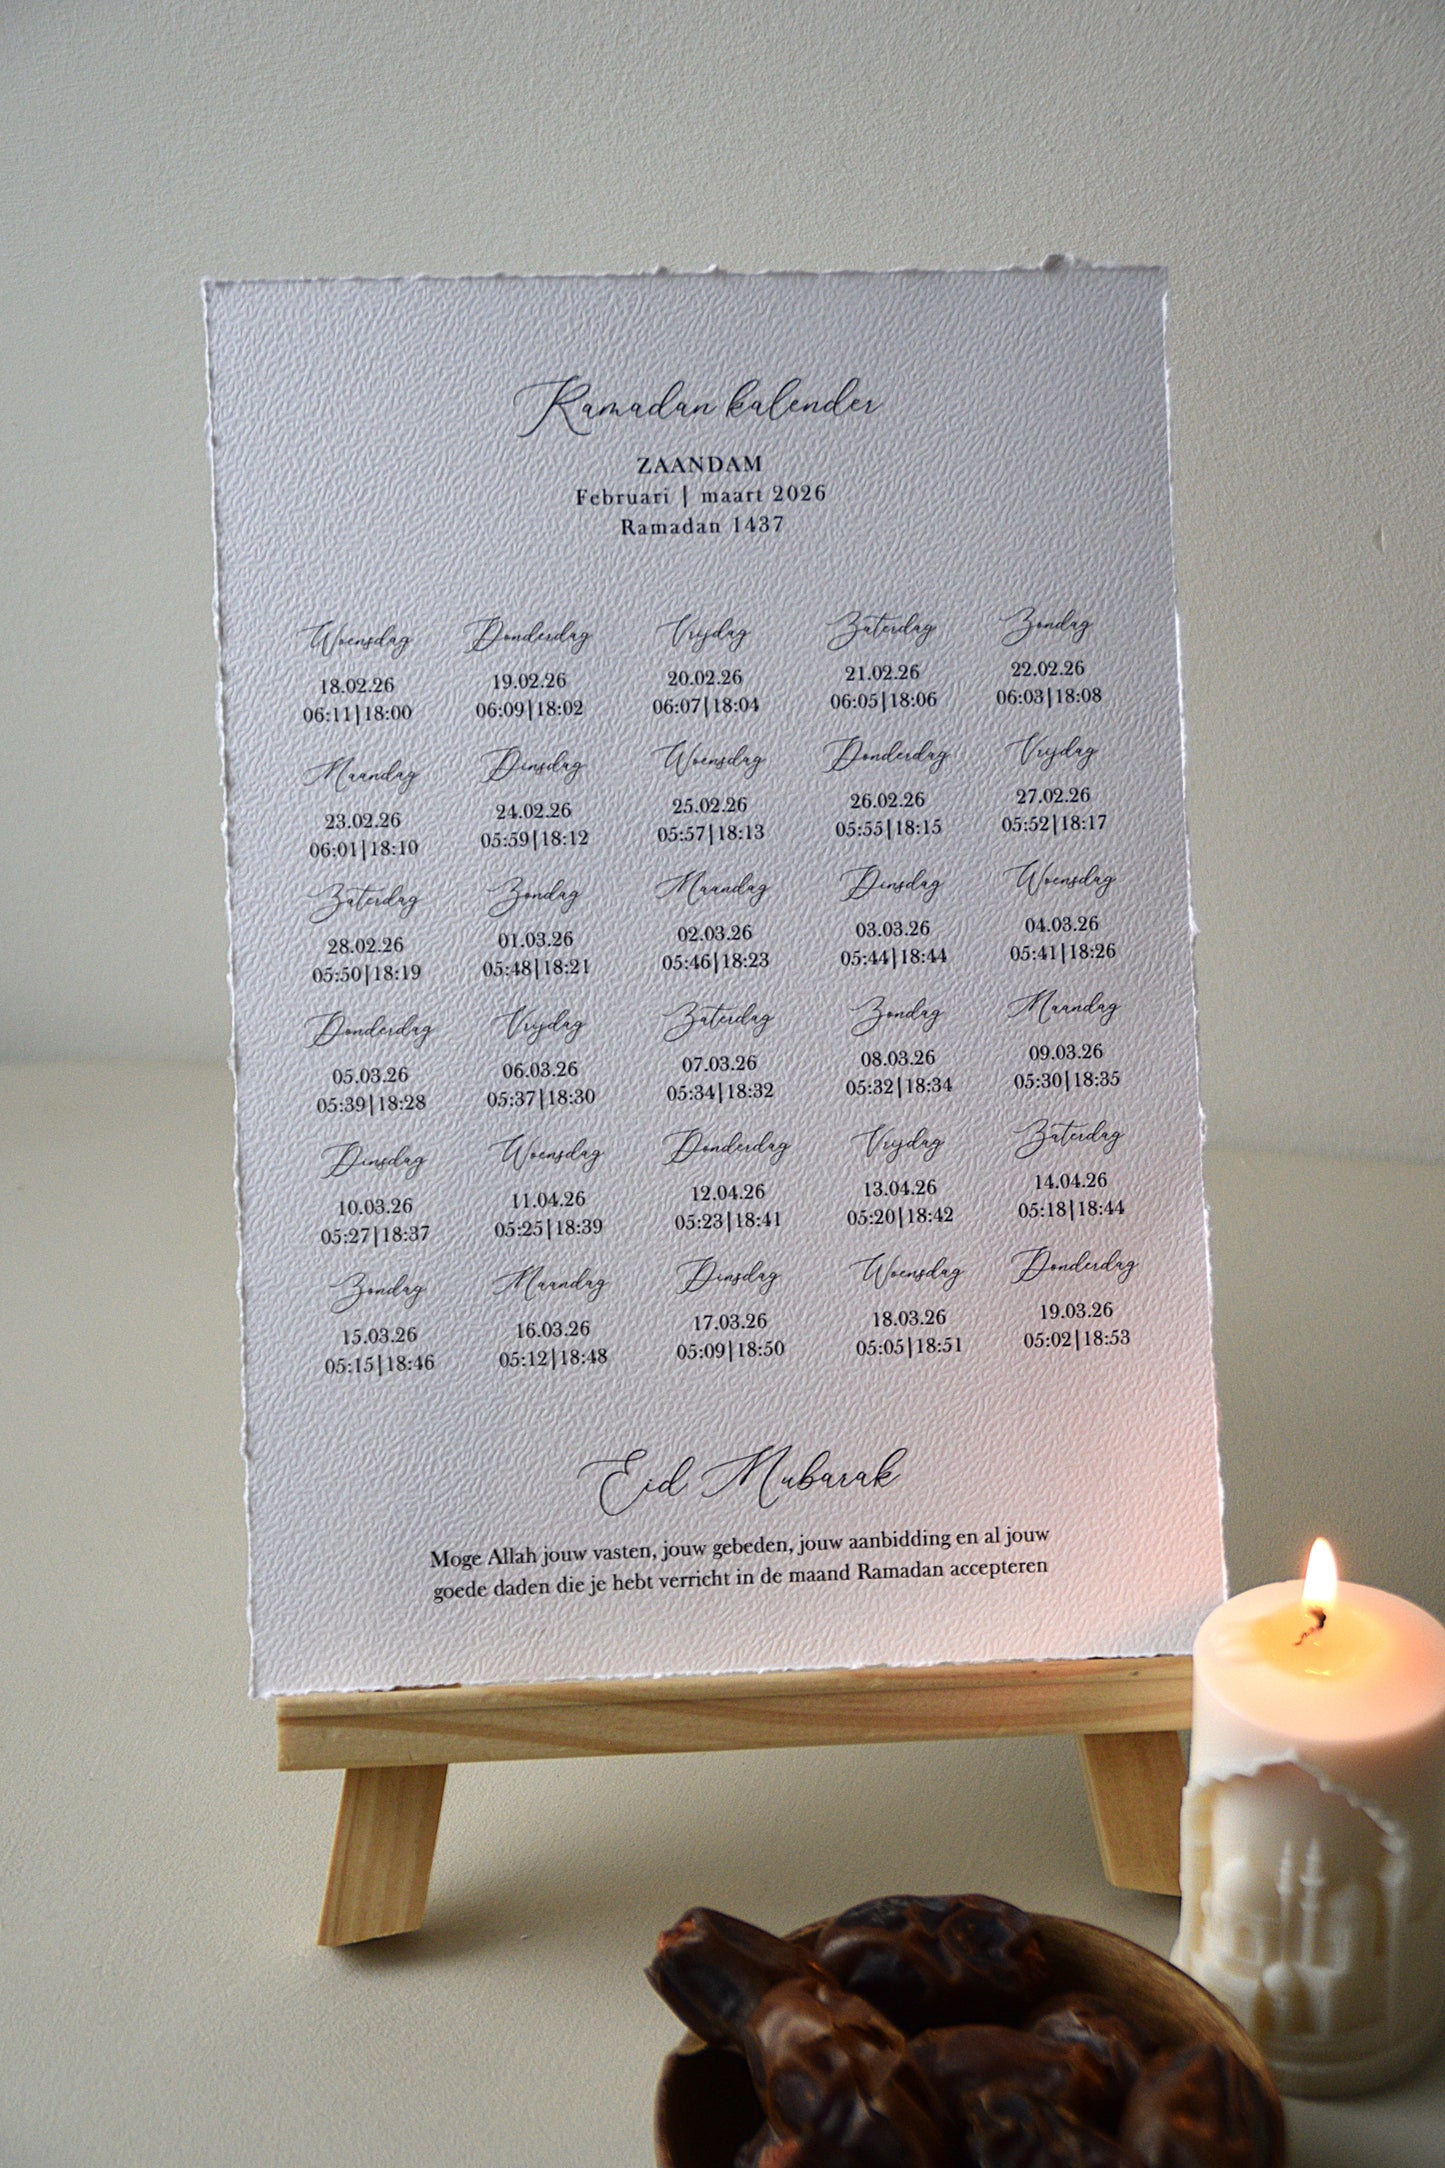 Ramadan kalender
ZAANDAM
Februari | maart 2026
Ramadan 1437
Woensdag Donderdag Vrijdag Zaterdag Zondag
18.02.26 19.02.26 20.02.26 21.02.26 22.02.26
06:11|18:00 06:09|18:02 06:07|18:04 06:05|18:06 06:03|18:08
Maandag Dinsdag Woensdag Donderdag Vrijdag
23.02.26 24.02.26 25.02.26 26.02.26 27.02.26
06:01|18:10 05:59|18:12 05:57|18:13 05:55|18:15 05:52|18:17
Zaterdag Zondag Maandag Dinsdag Woensdag
28.02.26 01.03.26 02.03.26 03.03.26 04.03.26
05:50|18:19 05:48|18:21 05:46|18:23 05:44|18:44 05:41|18:26
Donderdag Vrijdag Zaterdag Zondag Maandag
05.03.26 06.03.26 07.03.26 08.03.26 09.03.26
05:39|18:28 05:37|18:30 05:34|18:32 05:32|18:34 05:30|18:35
Dinsdag Woensdag Donderdag Vrijdag Zaterdag
10.03.26 11.04.26 12.04.26 13.04.26 14.04.26
05:27|18:37 05:25|18:39 05:23|18:41 05:20|18:42 05:18|18:44
Zondag Maandag Dinsdag Woensdag Donderdag
15.03.26 16.03.26 17.03.26 18.03.26 19.03.26
05:15|18:46 05:12|18:48 05:09|18:50 05:05|18:51 05:02|18:53
Eid Mubarak
Moge Allah jouw vasten, jouw gebeden, jouw aanbidding en al jouw
goede daden die je hebt verricht in de maand Ramadan accepteren